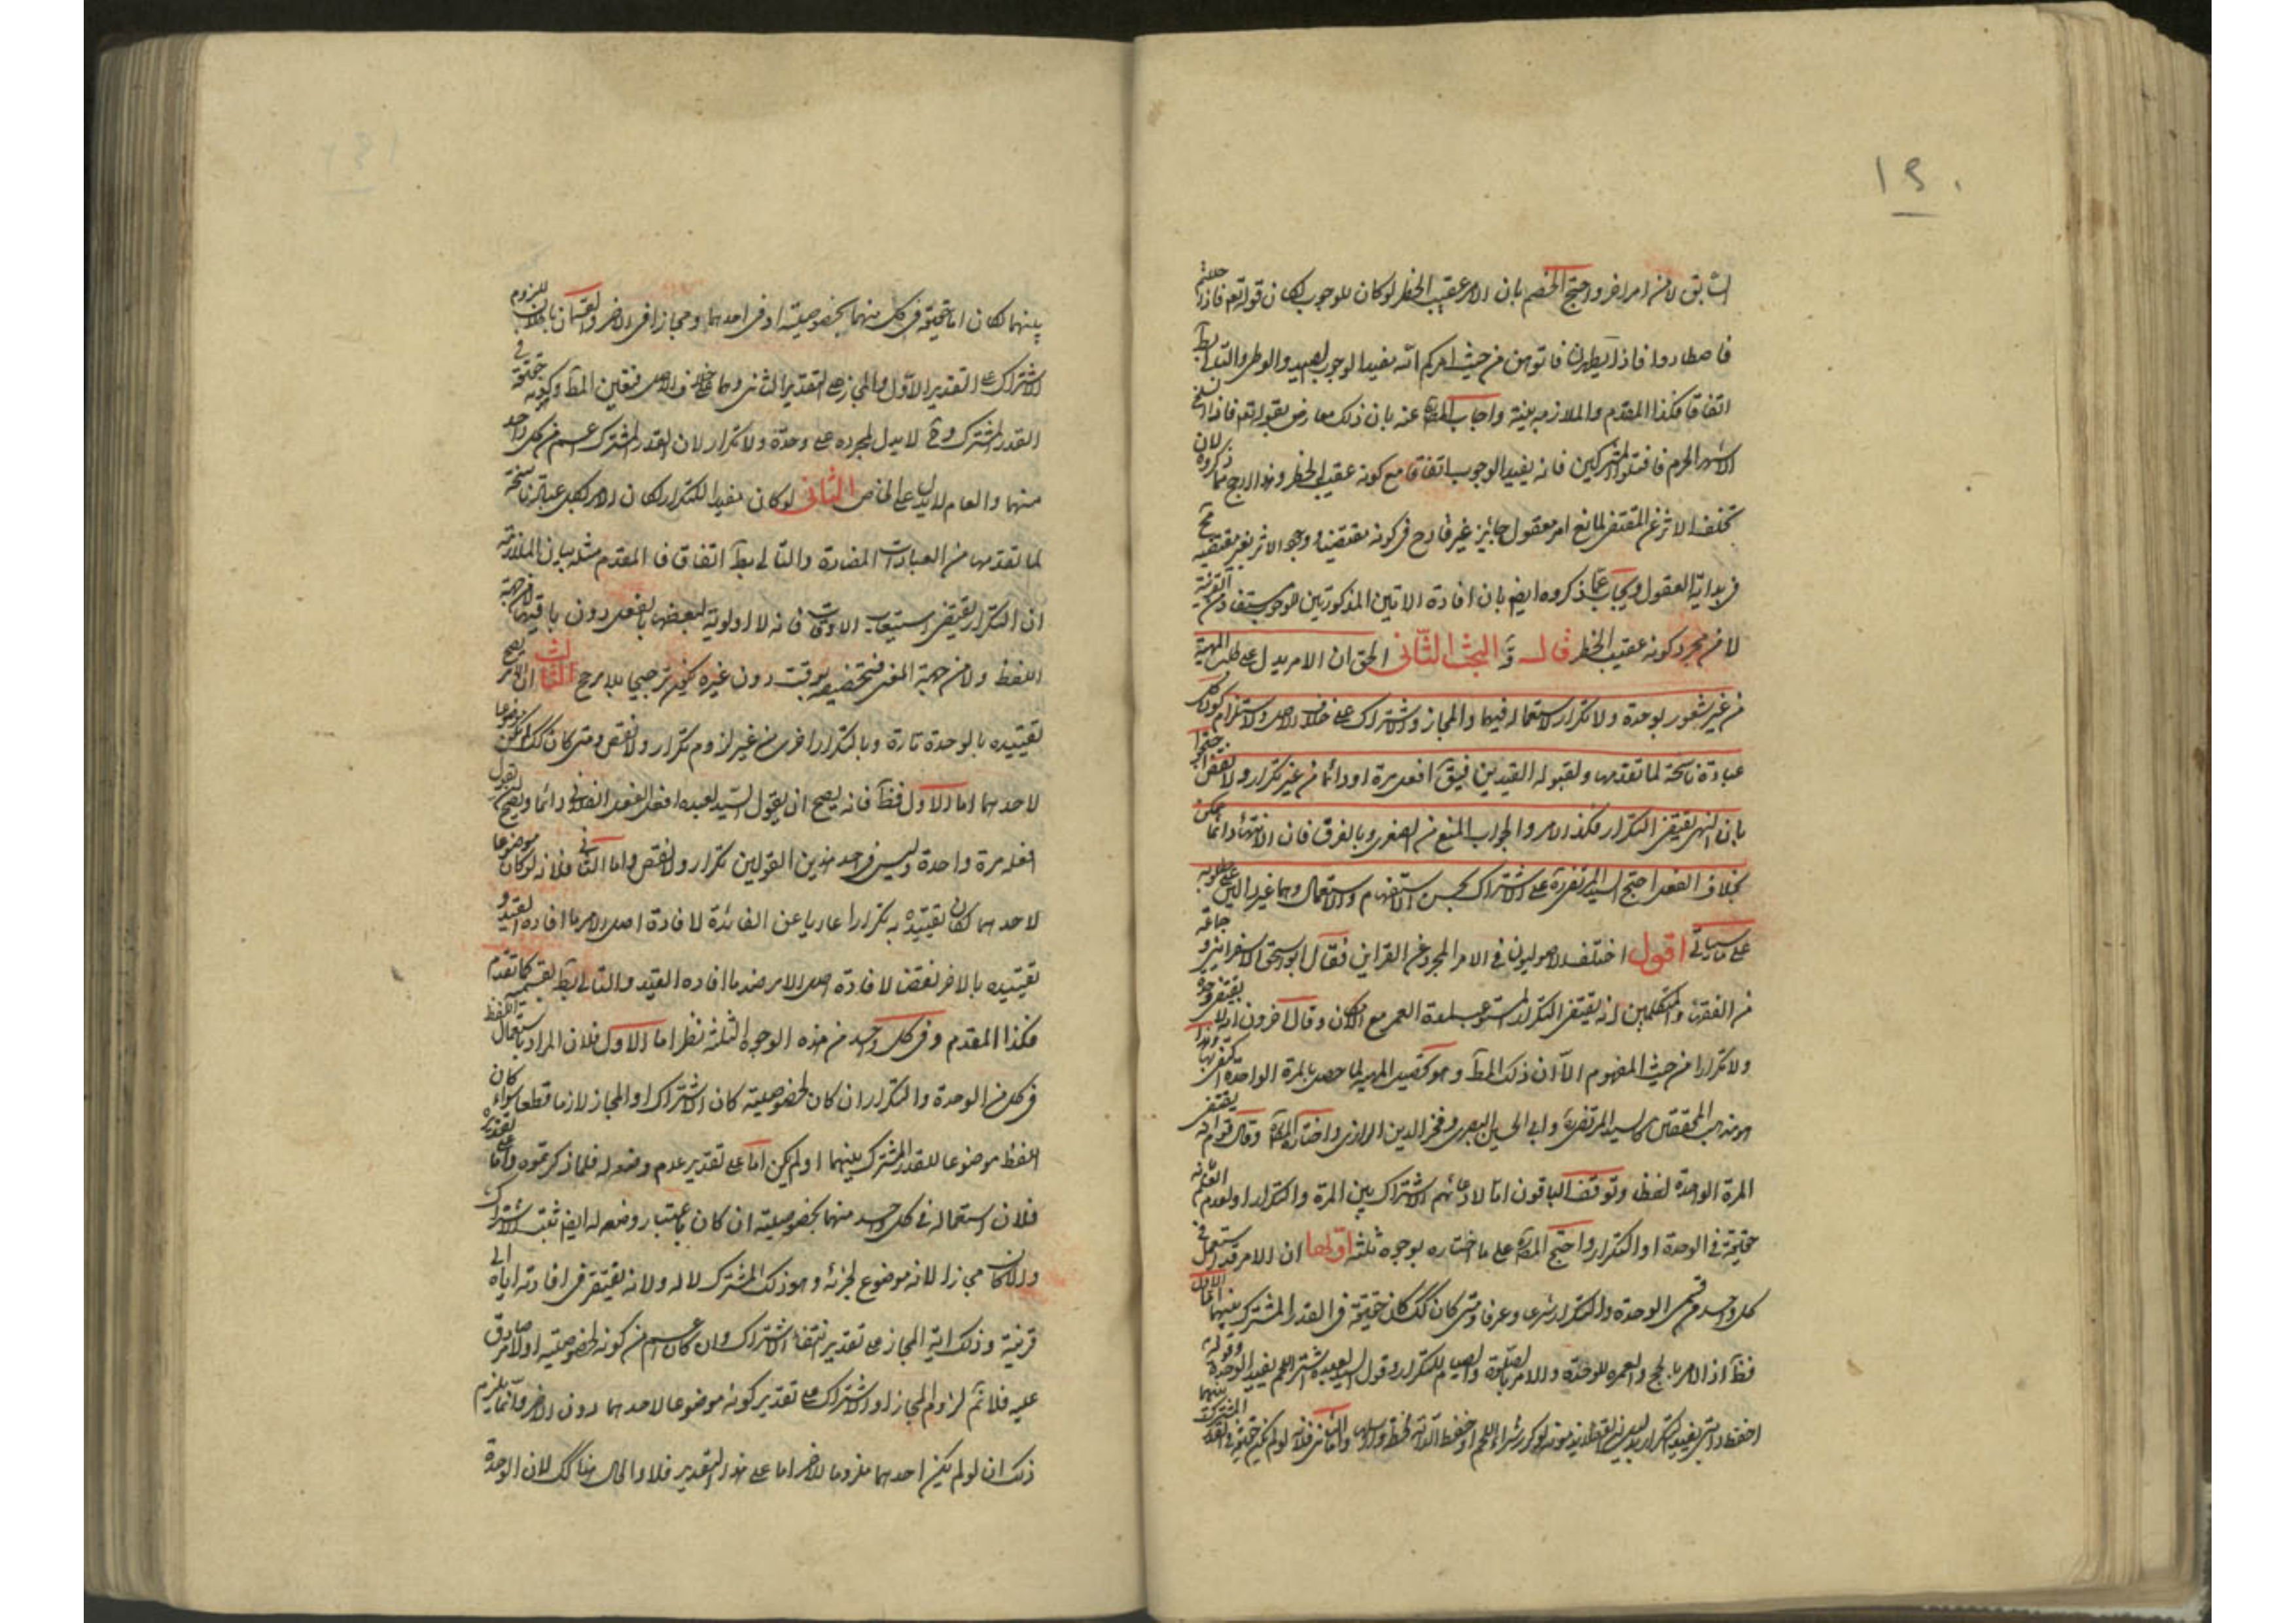 السابق لا من امر اخر واحتج الخصم بان الامر عقيب الحظر لو كان للوجوب لكان قوله تعم فاذا حللتم
فاصطادوا فاذا تطهرن فاتوهن من حيث امركم الله يفيد الوجوب للصيد والوطى والتالى بط
اتفاقا فكذا المقدم والملازمة بينة واجاب المصره عنه بان ذلك معارض بقوله تعم فاذا انسلخ
الاشهر الحرم فاقتلوا المشركين فانه يفيد الوجوب اتفاقا مع كونه عقيب الحظر وهذا ارجح مما ذكروه لان
تخلف الاثر عن المقتضى لمانع امر معقول جايز غير قادح فى كونه مقتضيا ووجود الاثر بغير مقتضيه مح
فى بداية العقول ويجاب عما ذكروه ايضا بان افادة الايتين المذكورتين للوجوب مستفاد من القرينة
لا من مجرد كونه عقيب الحظر قال البحث الثانى الحق ان الامر يدل على طلب المهية
من غير شعور بوحدة ولا تكرار لاستعماله فيهما والمجاز والاشتراك على خلاف الاصل ولاستلزام كون كل
عبادة ناسخة لما تقدمها ولقبوله القيدين فيق افعل مرة او دائما من غير تكرار ولا نقض احتجوا
بان النهى يقتضى التكرار فكذا الامر والجواب المنع من الصغرى وبالفرق فان الانتهاء دائما ممكن
بخلاف الفعل احتج السيد المرتضى ره على الاشتراك بحسن الاستفهام والاستعمال وهما غير دالين على مطلوبه
على ما سياتى اقول اختلف الاصوليون فى الامر المجرد عن القراين فقال ابو اسحق الاسفراينى وجماعة
من الفقهاء والمتكلمين انه يقتضى التكرار المستوعب لمدة العمر مع الامكان وقال اخرون انه لا يقتضى وحدة
ولا تكرارا من حيث المفهوم الا ان ذلك المط وهو تحصيل المهية لما حصل بالمرة الواحدة اكتفى بها وهذا
هو مذهب المحققين كالسيد المرتضى ره وابى الحسين البصرى وفخر الدين الرازى واختاره المصره وقال قوم انه يقتضى
المرة الواحدة لفظا وتوقف الباقون اما لادعائهم الاشتراك بين المرة والتكرار او لعدم العلم بانه
حقيقة فى الوحدة او التكرار واحتج المصره على ما اختاره بوجوه ثلثة اولها ان الامر قد استعمل فى
كل واحد من قسمى الوحدة والتكرار شرعا وعرفا ومتى كان كك كان حقيقة فى القدر المشترك بينهما اما الاول
فظ اذ الامر بالحج والعمره للوحدة والامر بالصلوة والصيام للتكرار وقول السيد لعبده اشتر اللحم يفيد الوحدة وقوله
احفظ دابتى يفيد التكرار واما الثانى فلانه لو لم يكن حقيقة فى القدر المشترك بينهما
بينهما لكان اما حقيقة فى كل منهما بخصوصيته او فى احدهما ومجازا فى الاخر والقسمان باطلان للزوم
الاشتراك على التقدير الاول والمجاز على التقدير الثانى وهما على خلاف الاصل فتعين المط وكونه حقيقة فى
القدر المشترك وح لا يدل بمجرده على وحدة ولا تكرار لان القدر المشترك اعم من كل واحد
منهما والعام لا يدل على الخاص الثانى لو كان مفيدا للتكرار لكان الامر بكل عبادة ناسخة
لما تقدمها من العبادات المضادة والتالى بط اتفاقا فالمقدم مثله بيان الملازمة
ان التكرار يقتضى استيعاب الاوقات فانه لا اولوية لبعضها بالفعل دون باقيها لا من جهة
اللفظ ولا من جهة المعنى فتخصيصه بوقت دون غيره يكون ترجيحا بلا مرجح الثالث ان الامر يصح
تقييده بالوحدة تارة وبالتكرار اخرى من غير لزوم تكرار ولا نقض ومتى كان كك لم يكن موضوعا
لاحدهما اما الاول فظ فانه يصح ان يقول السيد لعبده افعل الفعل الفلانى دائما ويصح ان يقول
افعله مرة واحدة وليس فى احد هذين القولين تكرار ولا نقض واما الثانى فلانه لو كان موضوعا
لاحدهما لكان تقييده به تكرارا عاريا عن الفائدة لافادة اصل الامر ما افاده القيد و
تقييده بالاخر نقضا لافادة اصل الامر ضد ما افاده القيد والتالى بط بقسميه كما تقدم
فكذا المقدم وفى كل واحد من هذه الوجوه الثلثة نظر اما الاول فلان المراد باستعمال اللفظ
فى كل من الوحدة والتكرار ان كان بخصوصيته كان الاشتراك او المجاز لازما قطعا سواء كان
اللفظ موضوعا للقدر المشترك بينهما او لم يكن اما على تقدير عدم وضعه له فلما ذكرتموه واما على تقديره
فلان استعماله فى كل واحد منهما بخصوصيته ان كان باعتبار وضعه له ايضا ثبت الاشتراك
والا كان مجازا لانه موضوع لجزئه وهو ذلك المشترك لا له ولانه يفتقر فى افادته اياه الى
قرينة وذلك اية المجاز على تقدير انتفاء الاشتراك وان كان اعم من كونه بخصوصيته او لامر صادق
عليه فلا نم لزوم المجاز او الاشتراك على تقدير كونه موضوعا لاحدهما دون الاخر وانما يلزم
ذلك ان لو لم يكن احدهما ملزوما للاخر اما على هذا التقدير فلا والحال هنا كك لان الوحدة